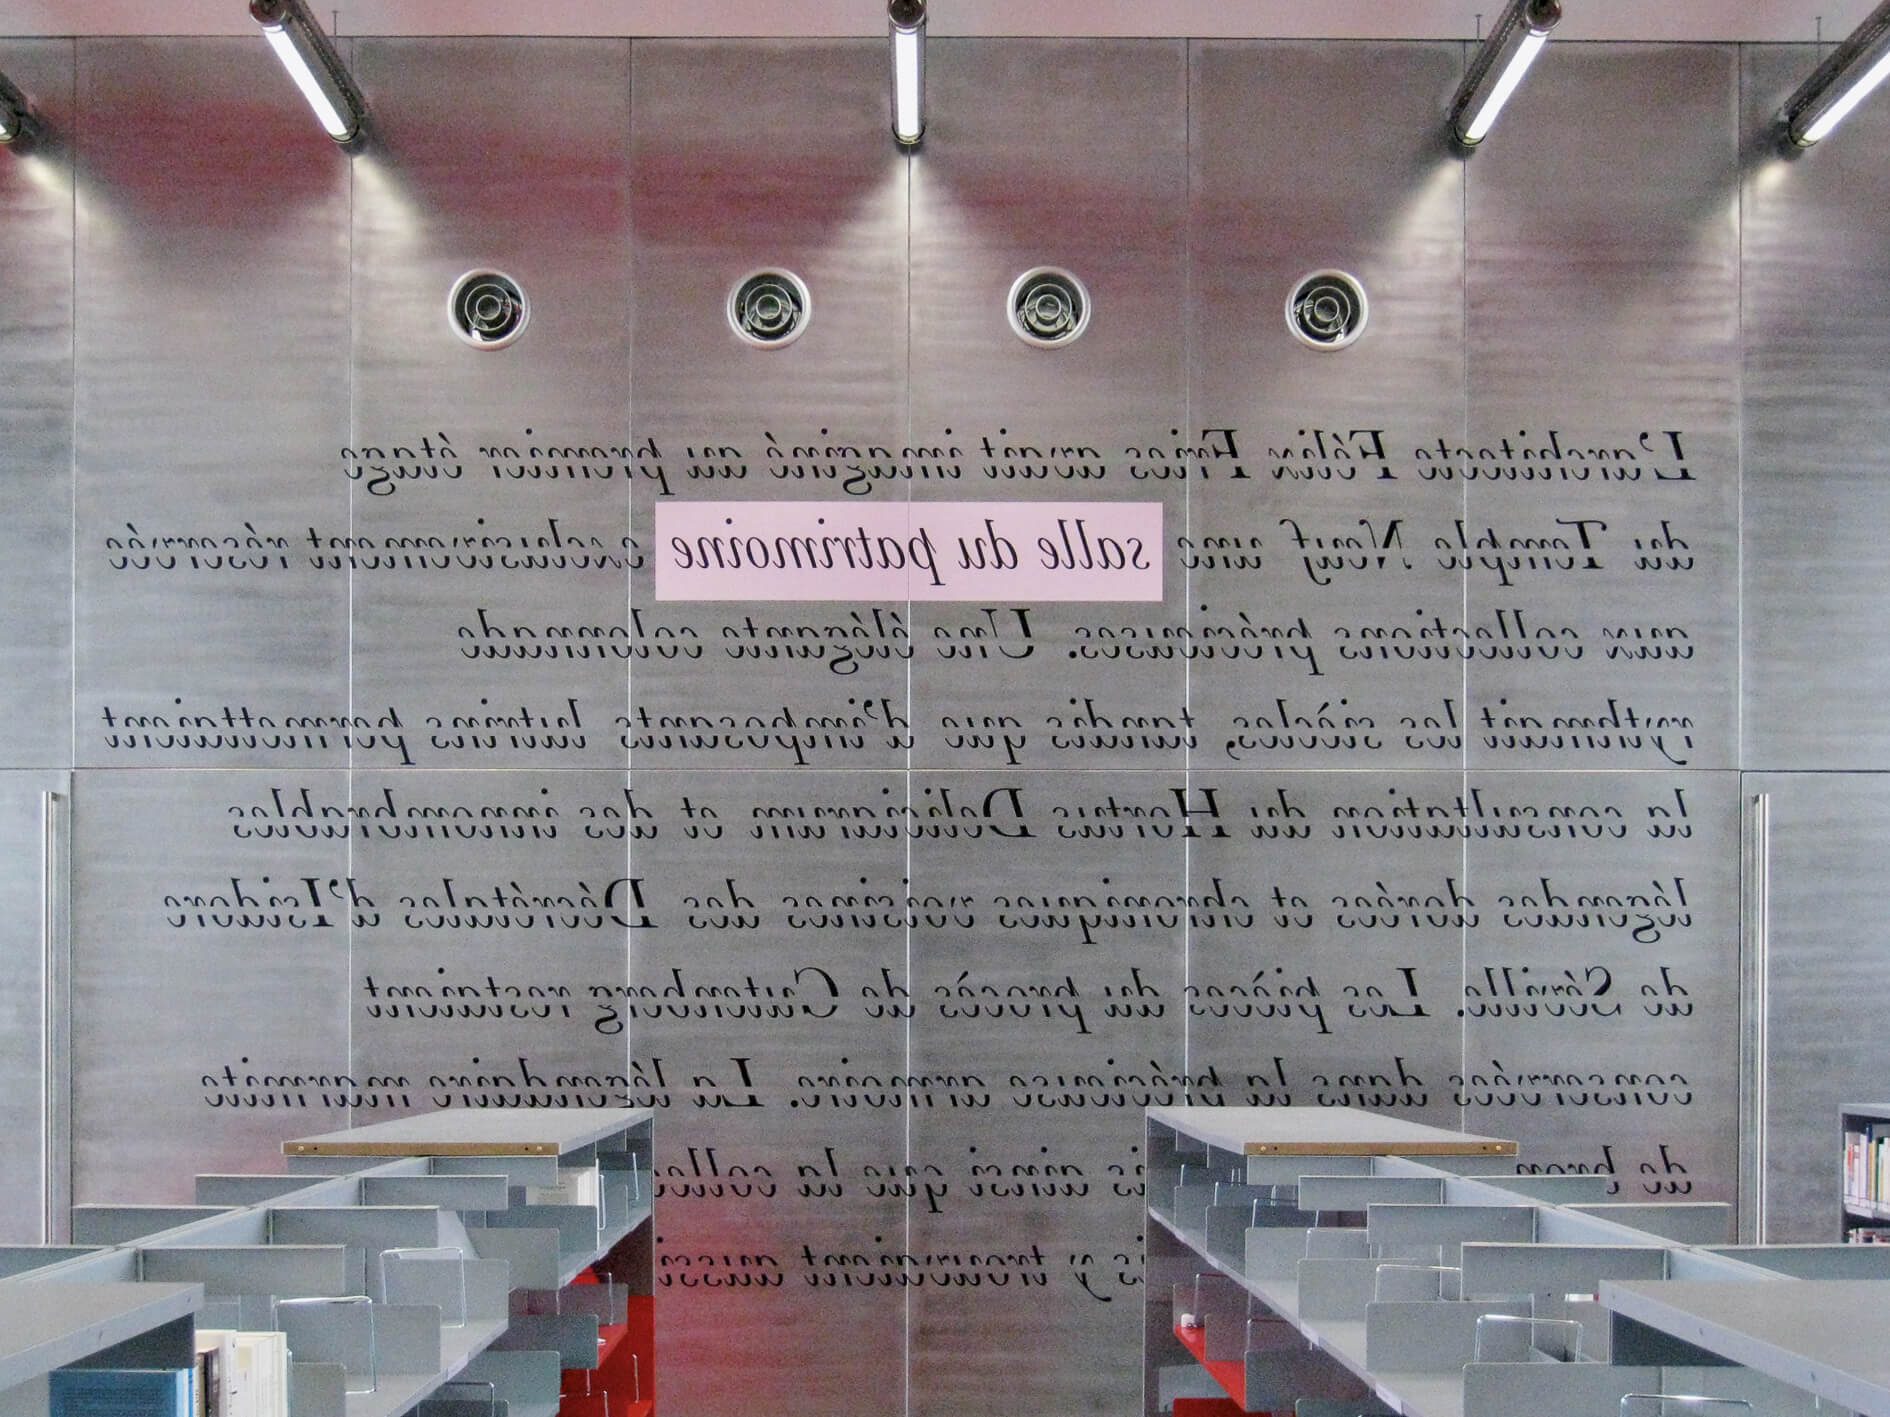 L'architecte Félix Fries avait imaginé au premier étage
du Temple Neuf une salle du patrimoine exclusivement réservée
aux collections précieuses. Une élégante colonnade
rythmait les siècles, tandis que d'imposants lutrins permettaient
la consultation du Hortus Deliciarum et des innombrables
légendes dorées et chroniques voisines des Décrétales d'Isidore
de Séville. Les pièces du procès de Gutenberg restaient
conservées dans la précieuse armoire. La légendaire marmite
de bron is ainsi que la colle
is y trouvaient aussi